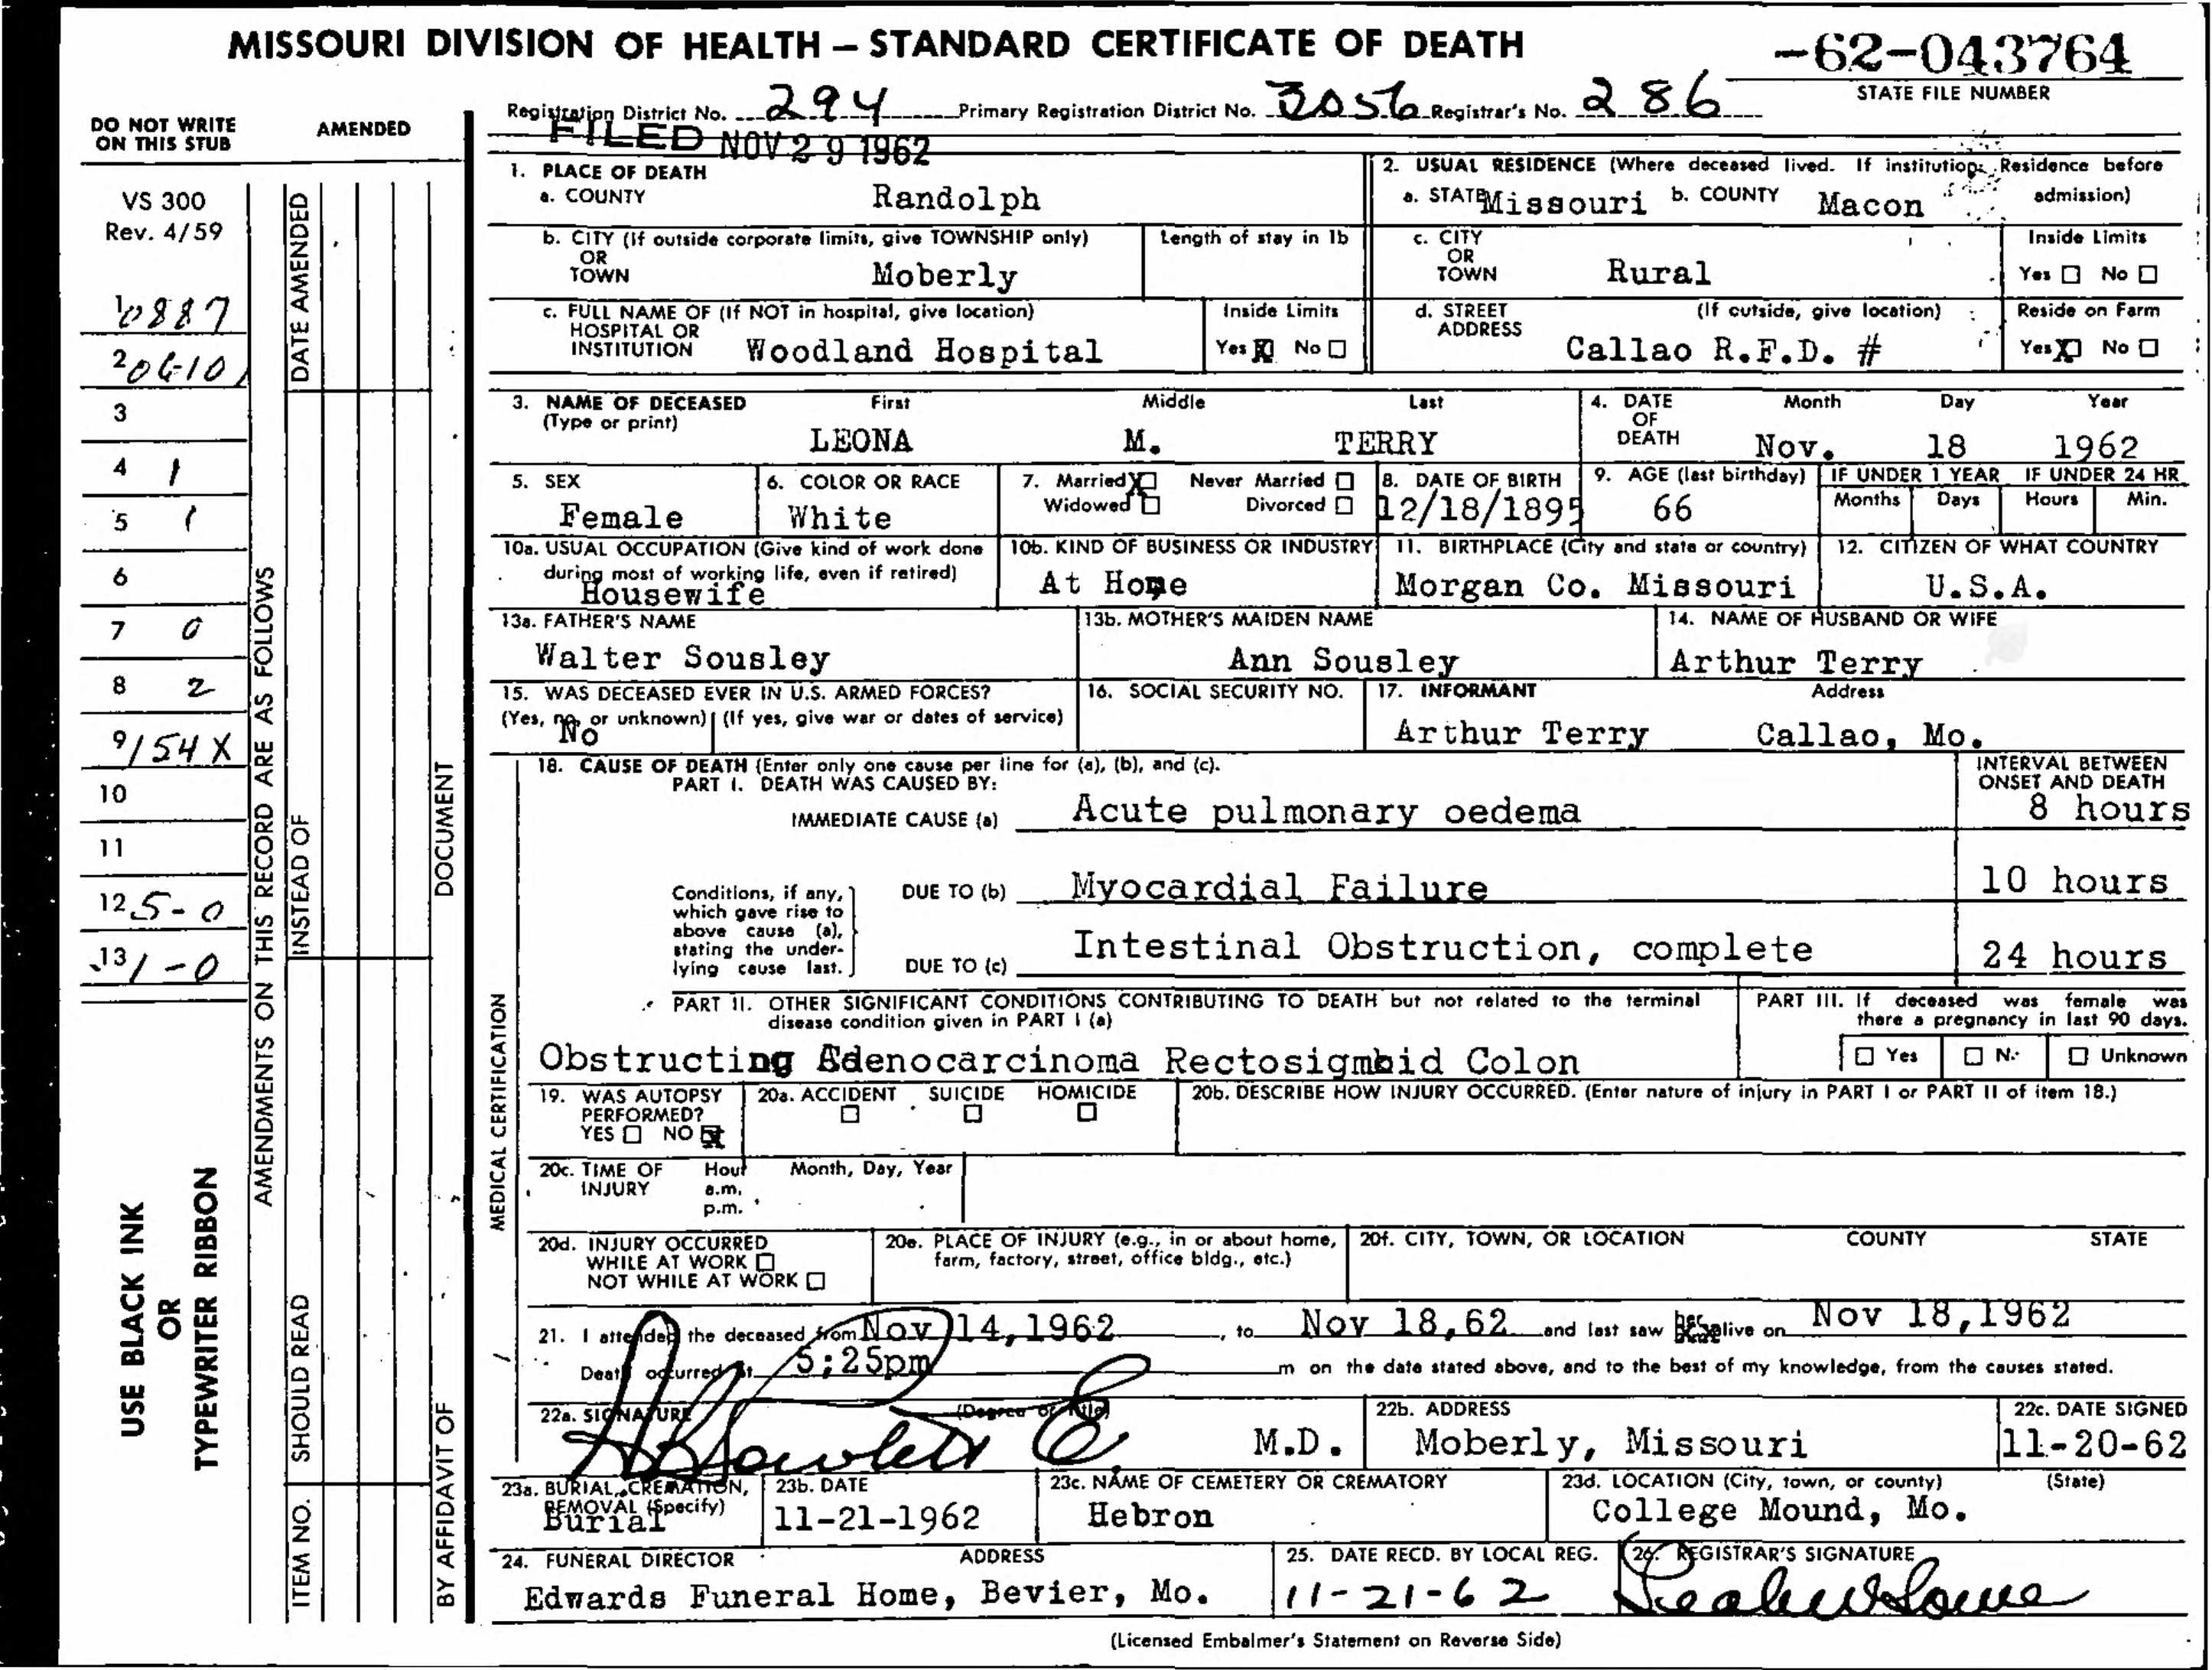 MISSOURI DIVISION OF HEALTH — STANDARD CERTIFICATE OF DEATH
-62-043764
STATE FILE NUMBER
Registration District No. 294 Primary Registration District No. 3056 Registrar's No. 286
FILED NOV 29 1962
DO NOT WRITE ON THIS STUB
AMENDED
VS 300
Rev. 4/59
1 0887
2
3
4 1
5 1
6
7 0
8 2
9 154X
10
11
12 5-0
13 1-0
USE BLACK INK
OR
TYPEWRITER RIBBON
AMENDMENTS ON THIS RECORD ARE AS FOLLOWS
DATE AMENDED
INSTEAD OF
SHOULD READ
ITEM NO.
DOCUMENT
BY AFFIDAVIT OF
1. PLACE OF DEATH
a. COUNTY Randolph
b. CITY (If outside corporate limits, give TOWNSHIP only) OR TOWN Moberly
Length of stay in 1b
c. FULL NAME OF (If NOT in hospital, give location) HOSPITAL OR INSTITUTION Woodland Hospital
Inside Limits Yes X No
2. USUAL RESIDENCE (Where deceased lived. If institution: Residence before admission)
a. STATE Missouri b. COUNTY Macon
c. CITY OR TOWN Rural
Inside Limits Yes No
d. STREET ADDRESS (If outside, give location) Callao R.F.D. #
Reside on Farm Yes X No
3. NAME OF DECEASED (Type or print) First Middle Last
LEONA M. TERRY
4. DATE OF DEATH Month Day Year
Nov. 18 1962
5. SEX Female
6. COLOR OR RACE White
7. Married X Never Married Widowed Divorced
8. DATE OF BIRTH 12/18/1895
9. AGE (last birthday) 66
IF UNDER 1 YEAR Months Days
IF UNDER 24 HR Hours Min.
10a. USUAL OCCUPATION (Give kind of work done during most of working life, even if retired) Housewife
10b. KIND OF BUSINESS OR INDUSTRY At Home
11. BIRTHPLACE (City and state or country) Morgan Co. Missouri
12. CITIZEN OF WHAT COUNTRY U.S.A.
13a. FATHER'S NAME Walter Sousley
13b. MOTHER'S MAIDEN NAME Ann Sousley
14. NAME OF HUSBAND OR WIFE Arthur Terry
15. WAS DECEASED EVER IN U.S. ARMED FORCES?
(Yes, no, or unknown) (If yes, give war or dates of service)
No
16. SOCIAL SECURITY NO.
17. INFORMANT Address
Arthur Terry Callao, Mo.
MEDICAL CERTIFICATION
18. CAUSE OF DEATH (Enter only one cause per line for (a), (b), and (c).
PART I. DEATH WAS CAUSED BY:
INTERVAL BETWEEN ONSET AND DEATH
IMMEDIATE CAUSE (a) Acute pulmonary oedema 8 hours
Conditions, if any, which gave rise to above cause (a), stating the underlying cause last.
DUE TO (b) Myocardial Failure 10 hours
DUE TO (c) Intestinal Obstruction, complete 24 hours
PART II. OTHER SIGNIFICANT CONDITIONS CONTRIBUTING TO DEATH but not related to the terminal disease condition given in PART I (a)
Obstructing Adenocarcinoma Rectosigmoid Colon
PART III. If deceased was female was there a pregnancy in last 90 days.
Yes No Unknown
19. WAS AUTOPSY PERFORMED? YES NO X
20a. ACCIDENT SUICIDE HOMICIDE
20b. DESCRIBE HOW INJURY OCCURRED. (Enter nature of injury in PART I or PART II of item 18.)
20c. TIME OF INJURY Hour a.m. p.m. Month, Day, Year
20d. INJURY OCCURRED
WHILE AT WORK
NOT WHILE AT WORK
20e. PLACE OF INJURY (e.g., in or about home, farm, factory, street, office bldg., etc.)
20f. CITY, TOWN, OR LOCATION COUNTY STATE
21. I attended the deceased from Nov 14,1962, to Nov 18,62 and last saw her alive on Nov 18,1962
Death occurred at 5;25pm m on the date stated above, and to the best of my knowledge, from the causes stated.
22a. SIGNATURE (Degree or title) M.D.
22b. ADDRESS Moberly, Missouri
22c. DATE SIGNED 11-20-62
23a. BURIAL, CREMATION, REMOVAL (Specify) Burial
23b. DATE 11-21-1962
23c. NAME OF CEMETERY OR CREMATORY Hebron
23d. LOCATION (City, town, or county) (State) College Mound, Mo.
24. FUNERAL DIRECTOR ADDRESS
Edwards Funeral Home, Bevier, Mo.
25. DATE RECD. BY LOCAL REG. 11-21-62
26. REGISTRAR'S SIGNATURE
(Licensed Embalmer's Statement on Reverse Side)